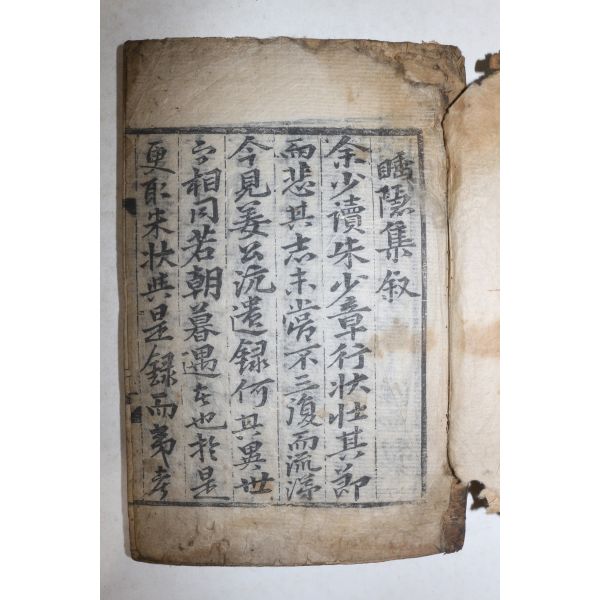 睡隱集叙
余少讀朱少章行狀壯其節
而悲其志未嘗不三復而流涕
今見姜公沆遺錄何其異世
而相同若朝暮遇者也於是
更取朱狀與是録而夷考